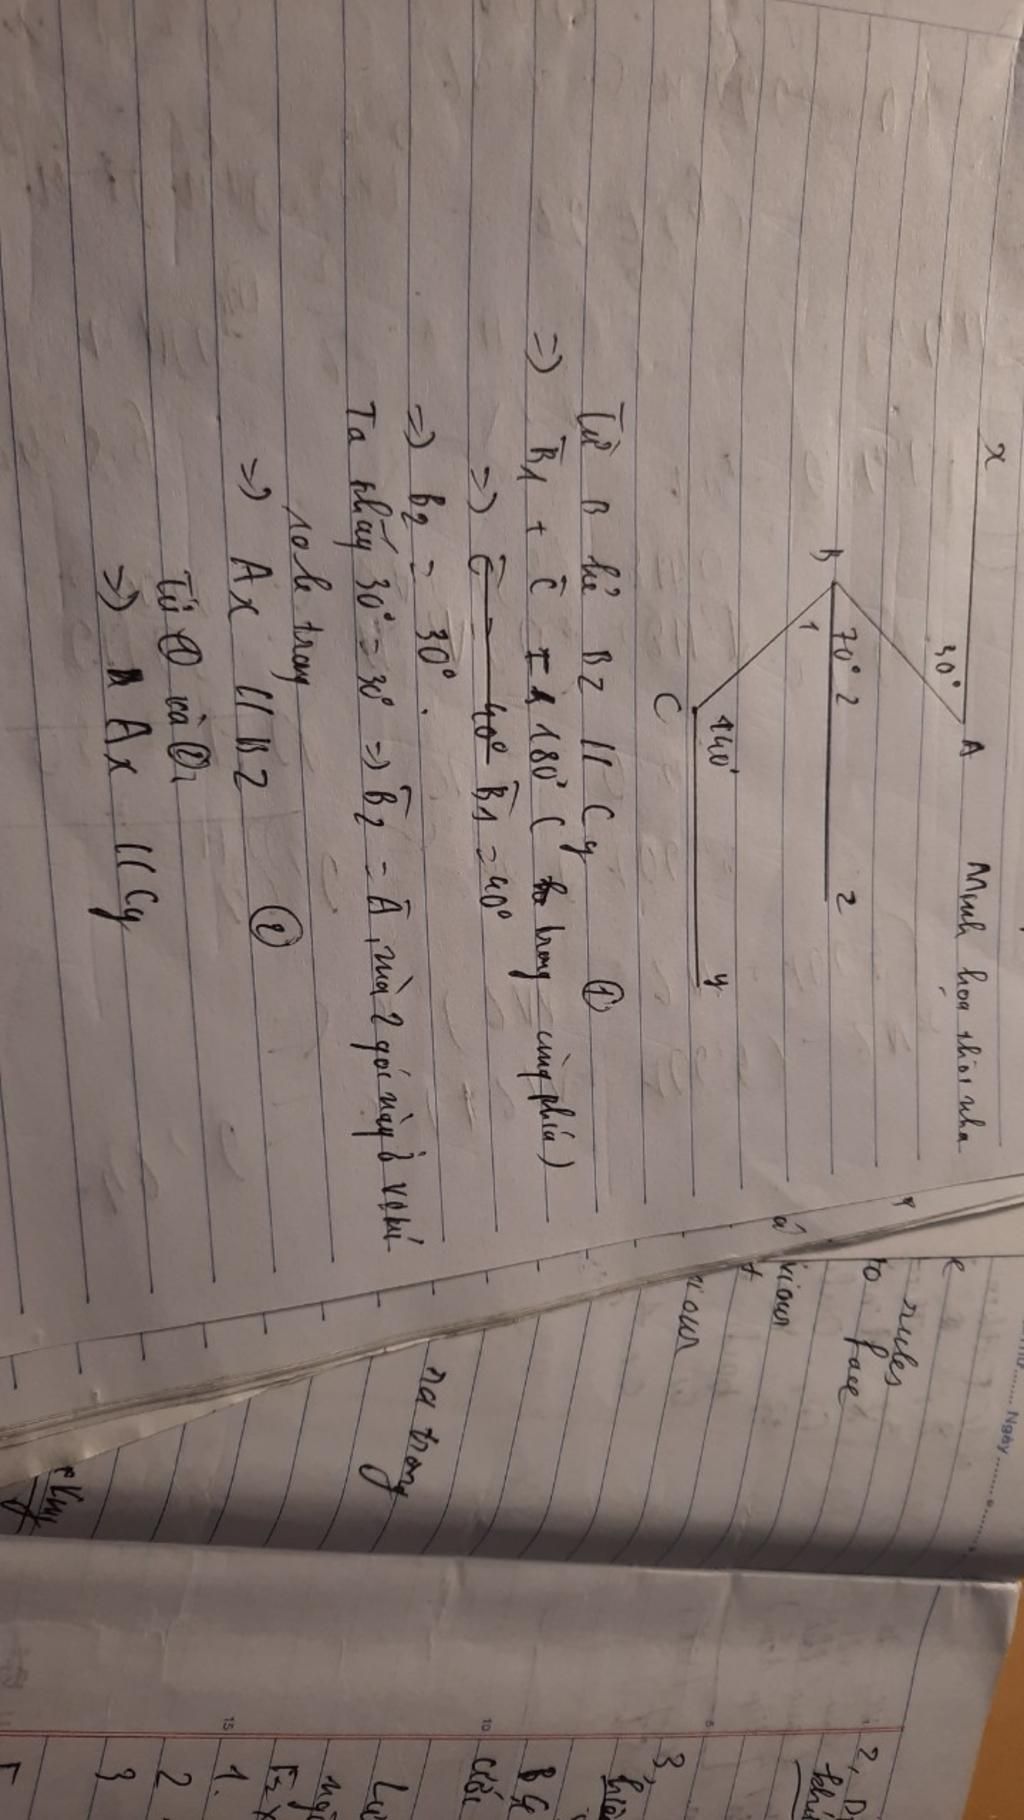 Minh họa thôi nha
x
A
30°
B
70° 2
1
z
140°
C
y
Từ B kẻ Bz // Cy ①
=) B1 + C = 180° ( trong cùng phía)
=) B1 = 40°
=) B2 = 30°.
Ta thấy 30° = 30° => B2 = A, mà 2 góc này ở vị trí
sole trong
=) Ax // Bz ②
Từ ① và ②
=) Ax // Cy
rules
face
to
e
na trong
Ngày
2,
3,
5
10
15
1.
2
3